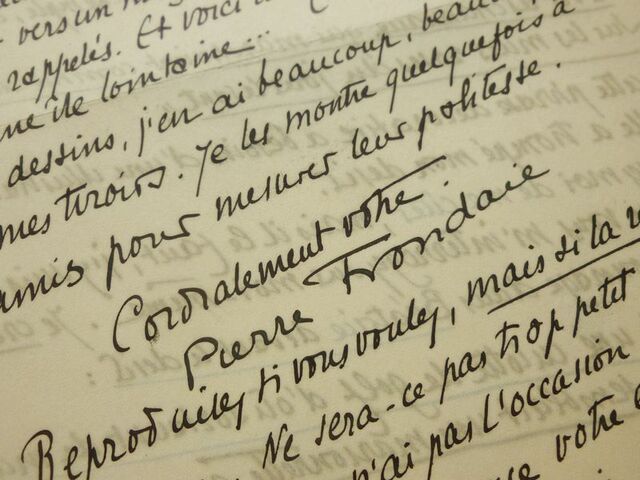 vers un
rappelés. Et voici
île lointaine...
dessins, j'en ai beaucoup,
mes tiroirs. Je les montre quelquefois à
amis pour mesurer leur politesse.
Cordialement vôtre.
Pierre Frondaie
Reproduisez si vous voulez, mais si la
Ne sera-ce pas trop petit
n'ai pas l'occasion
votre